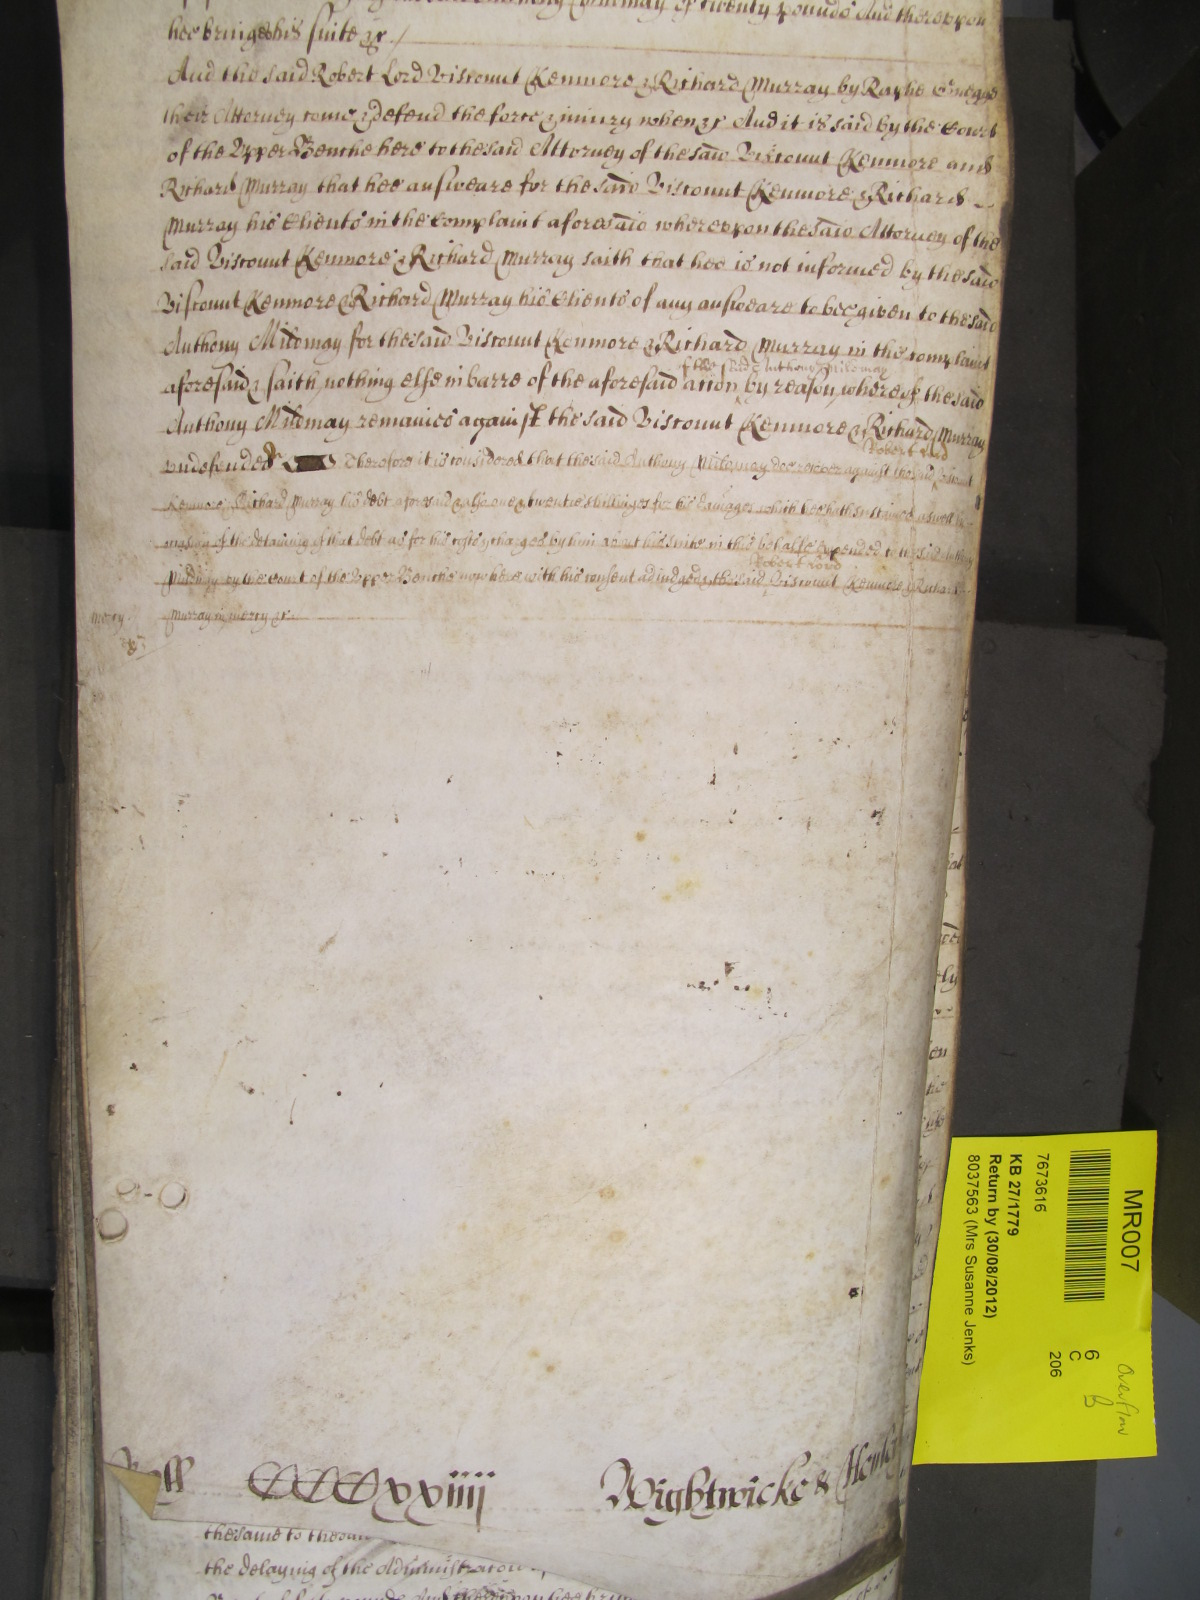 of twenty pounds And thereupon
hee bringes his suite &c
And the said Robert Lord Viscount Kenmore & Richard Murray by Raphe
their Attorney come & defend the force & iniury when &c And it is said by the Court
of the Upper Benche here to the said Attorney of the said Viscount Kenmore and
Richard Murray that hee answeare for the said Viscount Kenmore & Richard
Murray his Clients in the Complaint aforesaid whereupon the said Attorney of the
said Viscount Kenmore & Richard Murray saith that hee is not informed by the said
Viscount Kenmore & Richard Murray his Clients of any answeare to bee given to the said
Anthony Mildmay for the said Viscount Kenmore & Richard Murray in the complaint
of the said Anthony Mildmay
aforesaid & saith nothing else in barre of the aforesaid accion by reason whereof the said
Anthony Mildmay remaines against the said Viscount Kenmore & Richard Murray
Robert Lord
undefended Therefore it is considered that the said Anthony Mildmay doe recover against the said Viscount
Kenmore & Richard Murray his debt aforesaid & alsoe one & twentie shillinges for his damages which hee hath sustained aswell by
occasion of the detaining of that debt as for his costs & charges by him about his suite in this behalfe expended to the said Anthony
Robert Lord
Mildmay by the Court of the Upper Benche now here with his consent adiudged & the said Viscount Kenmore & Richard
mercy Murray in mercy &c
&c
Roll CCCCxxiiii Wightwicke &
the same to
the delaying of the Administration
MR007
7673616
KB 27/1779
Return by (30/08/2012)
8037563 (Mrs Susanne Jenks)
6
C
206
Overflow
B